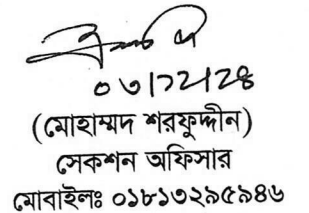 ০৩/১২/২৪
(মোহাম্মদ শরফুদ্দীন)
সেকশন অফিসার
মোবাইলঃ ০১৮১৩২৯৫৯৪৬